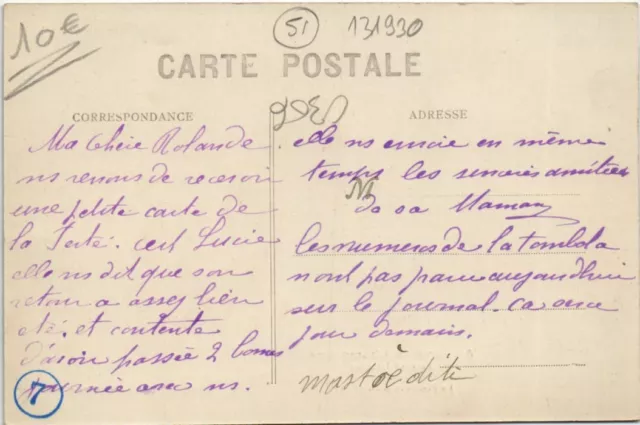 10€
51
131930
CARTE POSTALE
CORRESPONDANCE
Ma Chère Rolande
ns venons de recevoir
une petite carte de
la Ferté. cest Lucie
elle ns dit que son
retour a assez bien
été. et contente
d'avoir passée 2 bonnes
journée avec ns.
7
ADRESSE
elle ns envoie en même
temps les sincères amitiées
M
de sa Maman
les numeros de la tombola
nont pas parue aujourdhui
sur le journal. ca sera
pour demain.